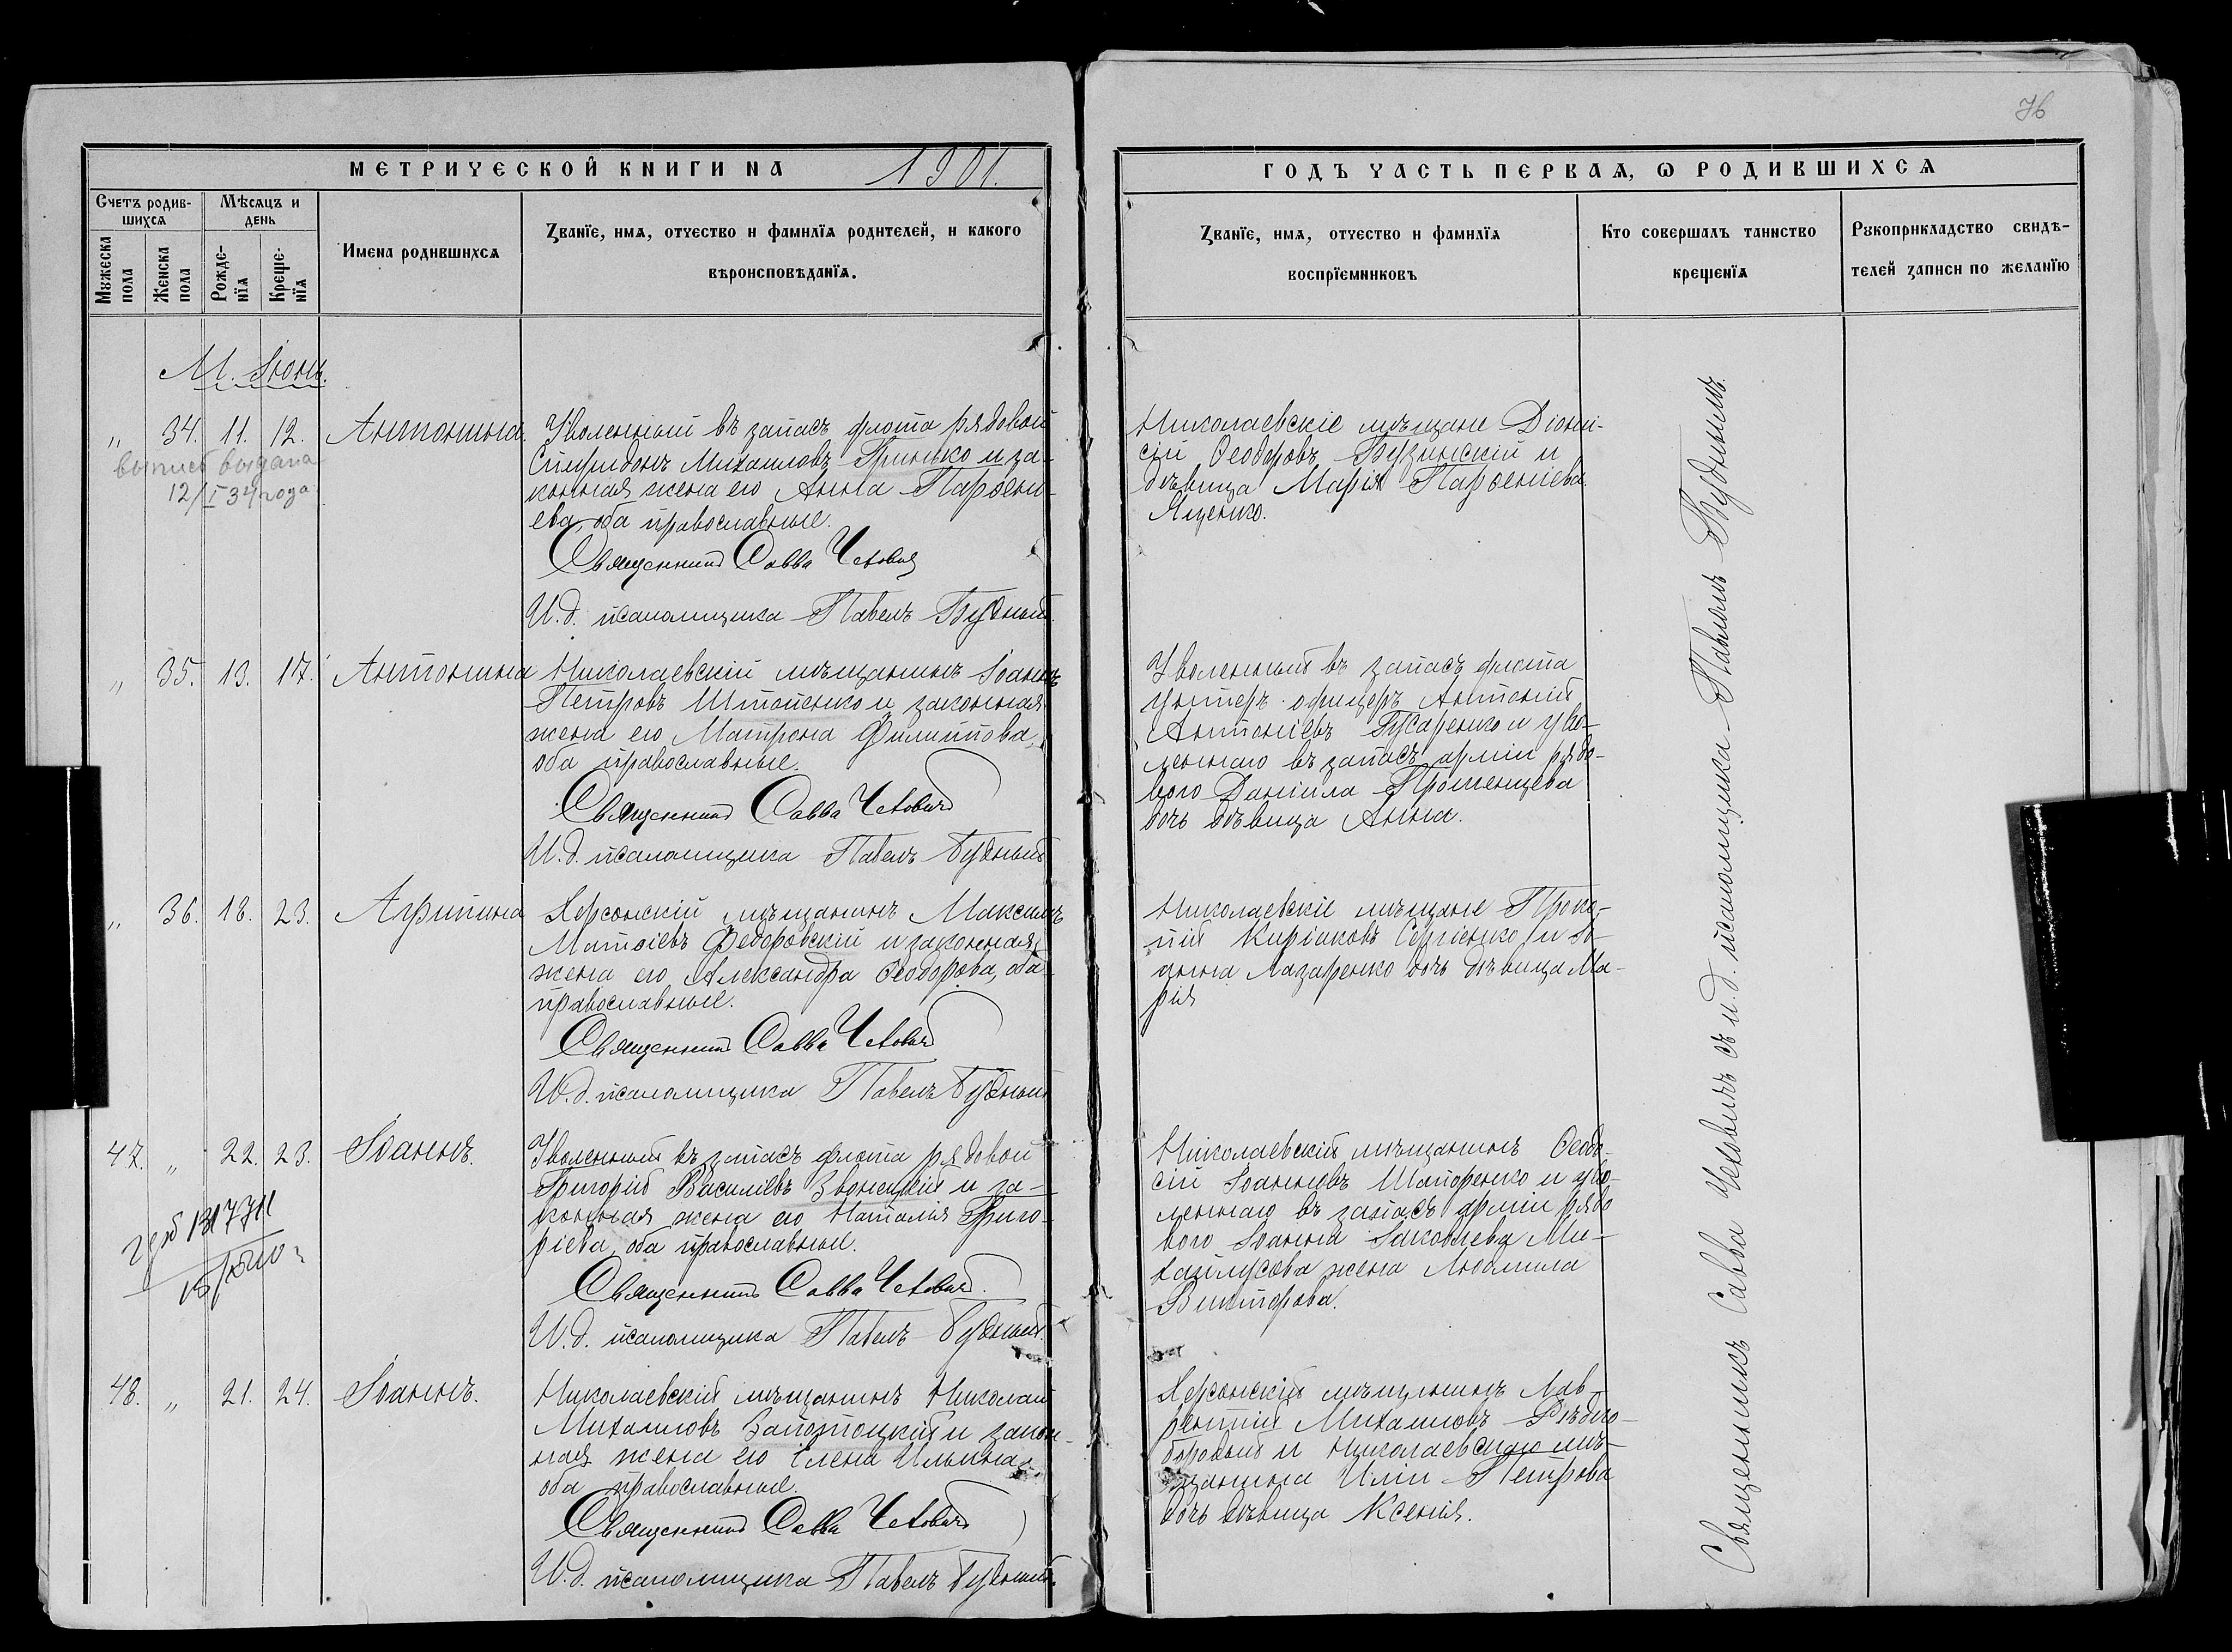 76
МЕТРИЧЕСКОЙ КНИГИ НА 1901.
ГОДЪ ЧАСТЬ ПЕРВАЯ, Ѡ РОДИВШИХСЯ
Счетъ родив-
шихся
Мѣсяцъ и
день
Мужеска
пола
Женска
пола
Рожде-
нїя
Креще-
нїя
Имена родившихся
Званїе, имя, отчество и фамилїя родителей, и какого
вѣроисповѣданїя.
Званїе, имя, отчество и фамилїя
воспрїемниковъ
Кто совершалъ таинство
крещенїя
Рукоприкладство свидѣ-
телей записи по желанїю
М. Іюнь.
„ 34. 11. 12. Антонина.
выпись выдана
12/I 34 года
Уволенный въ запасъ флота рядовой
Спиридонъ Михаиловъ Гринько и за-
конная жена его Анна Парѳени-
ева, оба православные.
Священникъ Савва Чехович
И.д. псаломщика Павелъ Будный.
Николаевскіе мѣщане Діони-
сій Ѳеодоровъ Бузинскій и
дѣвица Марія Парѳеніева
Яценко.
„ 35. 13. 17. Антонина
Николаевскій мѣщанинъ Іоаннъ
Петровъ Штопенко и законная
жена его Матрона Филиппова,
оба православные.
Священникъ Савва Чехович
И.д. псаломщика Павелъ Будный
Уволенный въ запасъ флота
унтеръ-офицеръ Антоній
Антоніевъ Гусаренко и уво-
леннаго въ запасъ арміи рядо-
вого Даніила Проженцева
дочь дѣвица Анна.
„ 36. 18. 23. Агрипина
Херсонскій мѣщанинъ Максимъ
Матѳіевъ Федоровскій и законная
жена его Александра Ѳеодорова, оба
православные.
Священникъ Савва Чехович
И.д. псаломщика Павелъ Будный
Николаевскіе мѣщане Проко-
пій Киріаковъ Сергіенко и Іо-
анна Лазаренко дочь дѣвица Ма-
рія
47. „ 22. 23. Іоаннъ.
Уволенный въ запасъ флота рядовой
Григорій Василіевъ Звонецкій и за-
конная жена его Наталія Григо-
ріева, оба православные.
Священникъ Савва Чехович.
И.д. псаломщика Павелъ Будный.
Николаевскій мѣщанинъ Ѳеодо-
сій Іоанновъ Шапоренко и уво-
леннаго въ запасъ арміи рядо
вого Іоанна Іаковлева Ми-
хайлусова жена Людмила
Викторова.
48. „ 21. 24. Іоаннъ.
Николаевскій мѣщанинъ Николай
Михаиловъ Запотоцкій и закон-
ная жена его Елена Ильина,
оба православные.
Священникъ Савва Чехович
И.д. псаломщика Павелъ Будный.
Херсонскій мѣщанинъ Лав-
рентій Михаиловъ Рѣдко-
бородый и Николаевскаго мѣ-
щанина Иліи Петрова
дочь дѣвица Ксенія.
Священникъ Савва Чеховичъ съ и.д. псаломщика Павломъ Буднымъ.